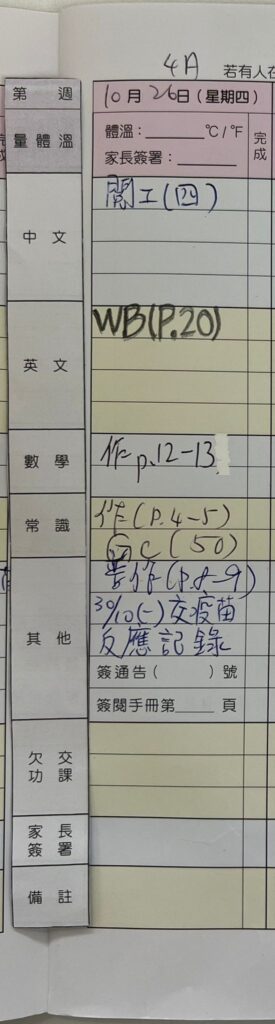 4A 若有人在
第 週 10月26日(星期四)
量體溫 體溫:______℃/℉ 完成
家長簽署:______
中文 閱工(四)
英文 WB(P.20)
數學 作p.12-13
常識 作(P.4-5)
C(50)
其他 普作(p.8-9)
30/10(一)交疫苗
反應記錄
簽通告( )號
簽閱手冊第____頁
欠交功課
家長簽署
備註